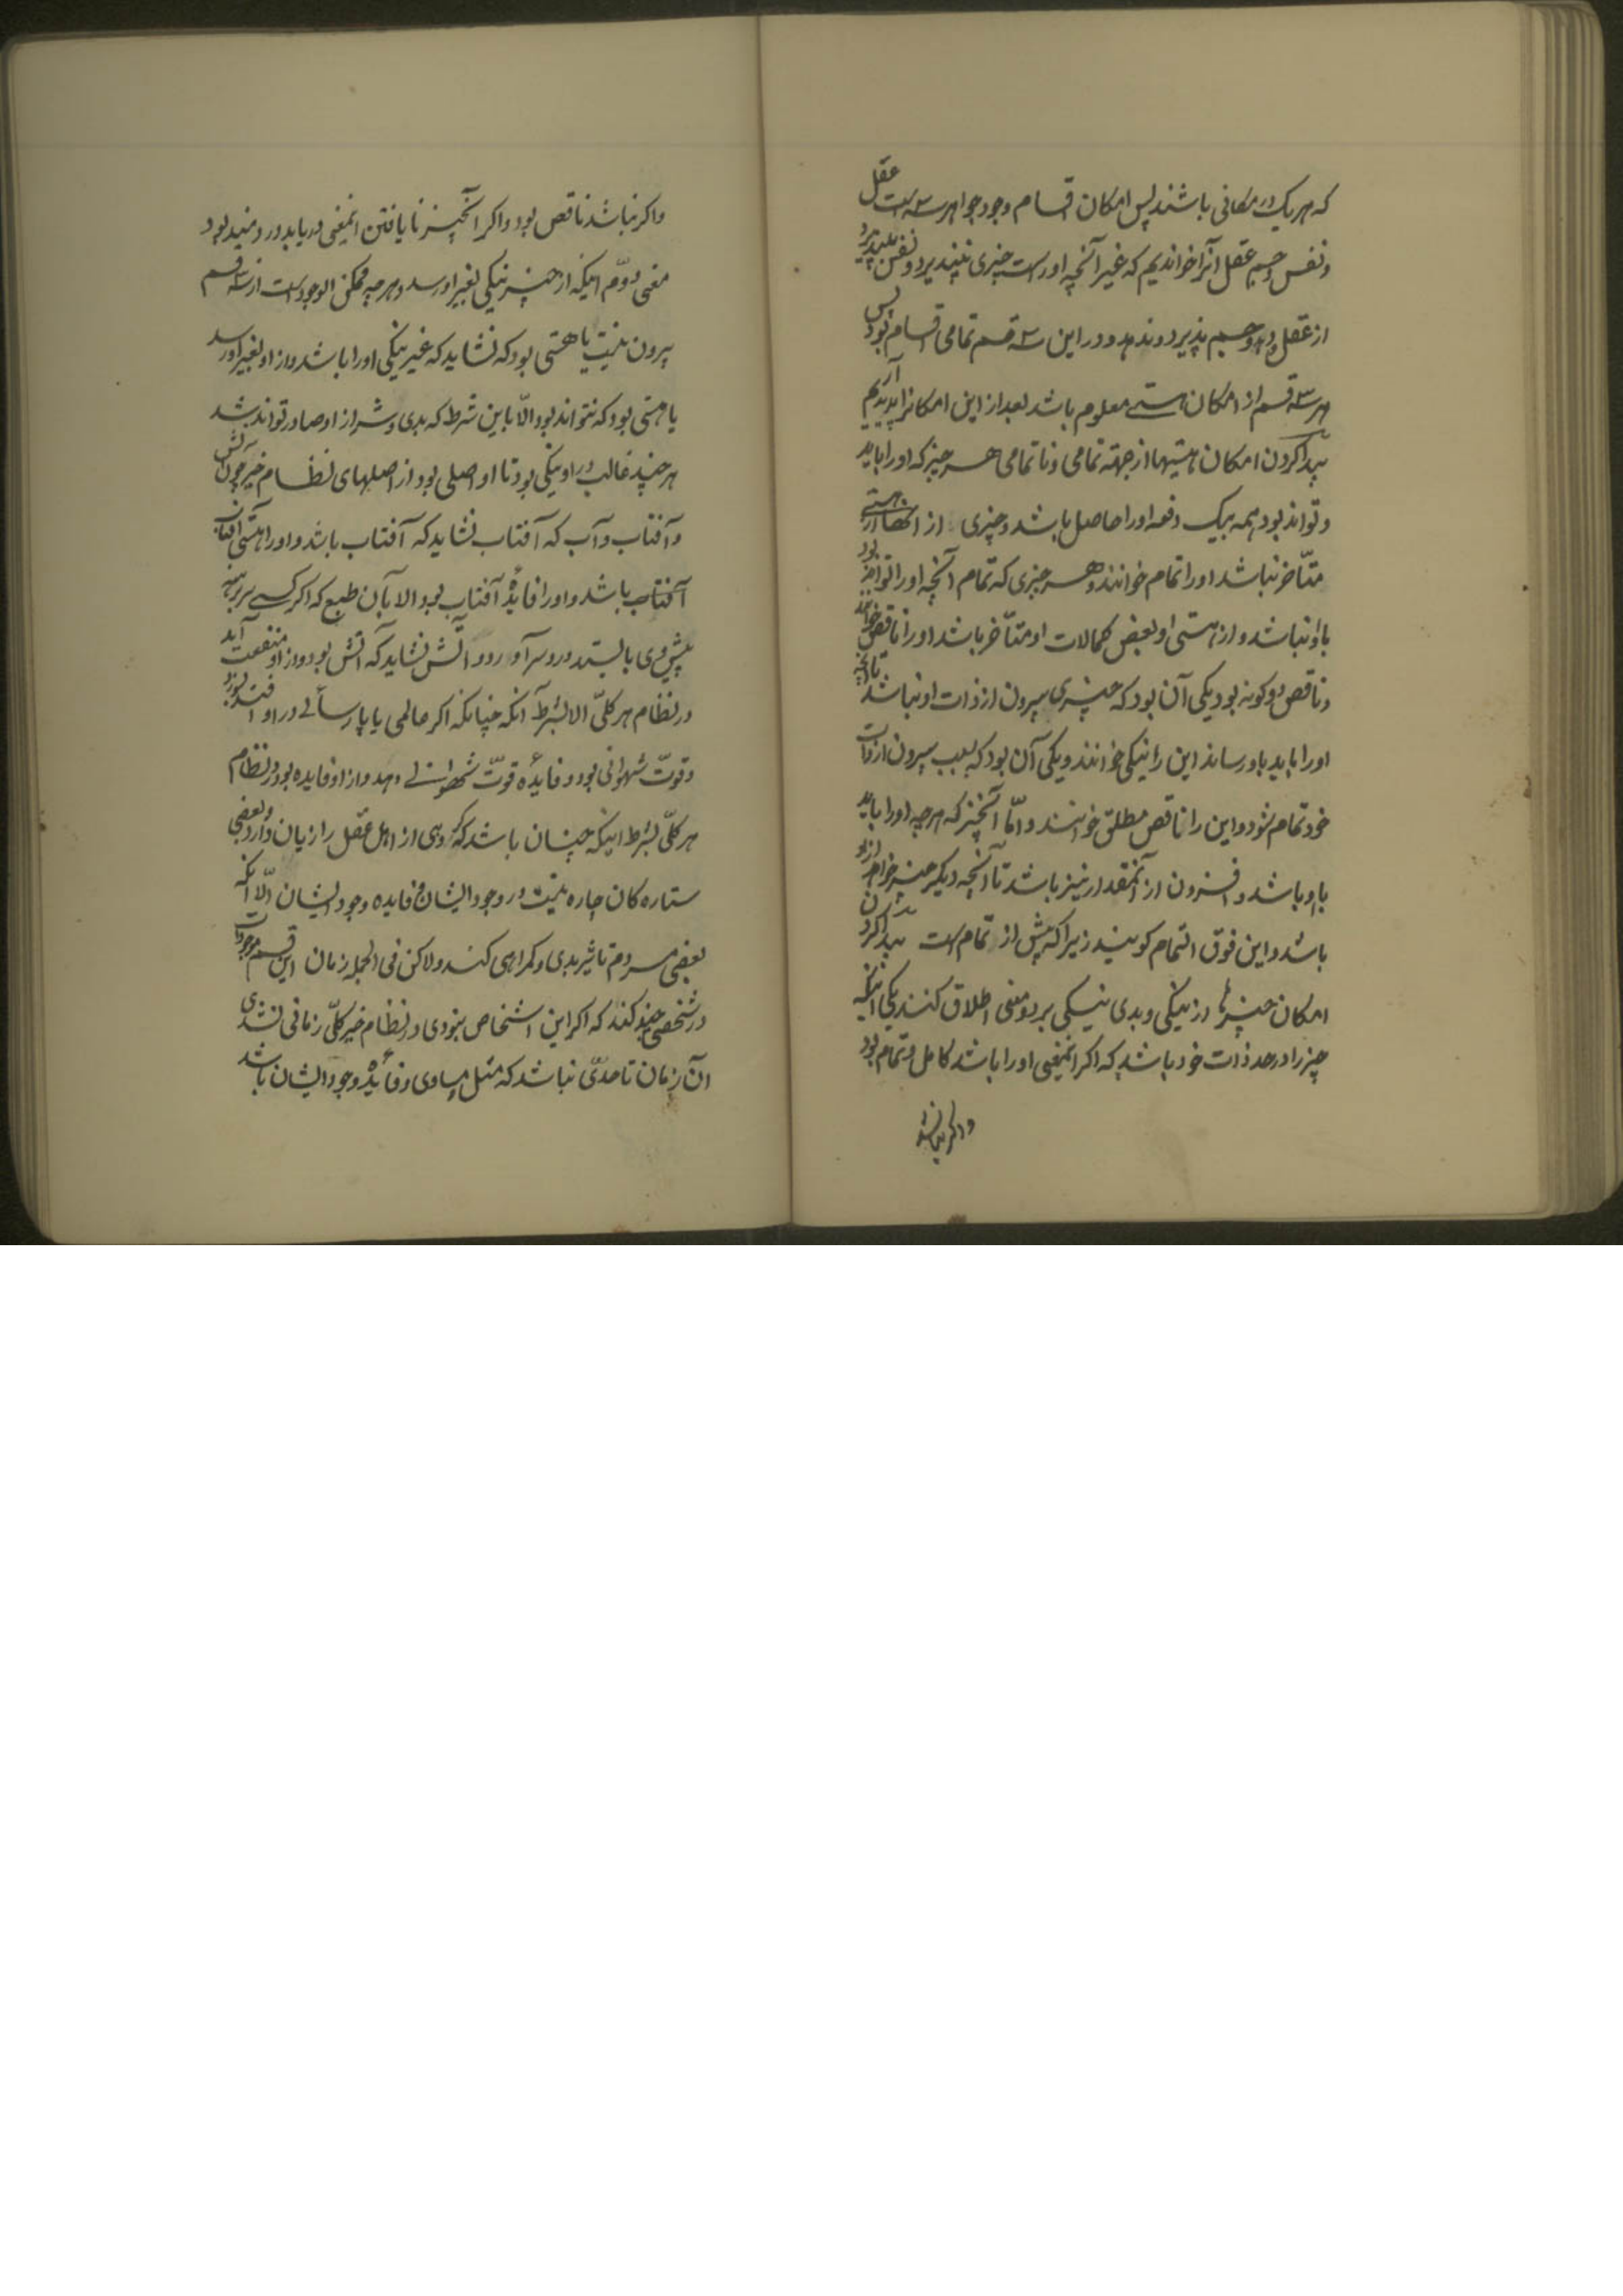 که هر یک در مکانی باشند پس امکان اقسام وجود جواهر سه است عقل
و نفس و جسم عقل آنرا خواندیم که غیر آنچه اوراست چیزی نپذیرد و نفس بپذیرد
از عقل و دهد و جسم پذیرد و ندهد و در این سه قسم تمامی اقسام بود پس
هر سه قسم از امکان هستی معلوم باشد بعد از این امکانرا پدید آریم
پیدا کردن امکان هستیها از جهته تمامی و ناتمامی هر چیز که اورا باید
و تواند بود همه بیک دفعه اورا حاصل باشد و چیزی از انها از هستی
متأخر نباشد اورا تمام خوانند و هر چیزی که تمام آنچه اورا تواند بود
با او نباشد و از هستی او بعضی کمالات او متأخر باشد اورا ناقص خوانند
و ناقص دو کونه بود یکی آن بود که چیزی بیرون از ذات او نباشد تا آنچه
اورا باید باو رساند این را نیکی خوانند و یکی آن بود که بسبب بیرون از ذات
خود تمام شود و این را ناقص مطلق خوانند و امّا آنچیز که هرچه اورا باید
با او باشد و افزون از آنمقدار نیز باشد تا آنچه دیکر چیز خواهد از او
باشد و این فوق التمام کویند زیرا که بیش از تمام است پیدا کردن
امکان چیزها در نیکی و بدی نیکی بر دو معنی اطلاق کنند یکی آنکه
چیز را در حد ذات خود باشد که اکر انمعنی اورا باشد کامل و تمام بود
و اکر نباشد
و اکر نباشد ناقص بود و اکر آنچیز نا یافتن انمعنی دریابد دردمند بود
معنی دوّم اینکه از چیز نیکی بغیر او رسد و هرچه ممکن الوجود است از سه قسم
بیرون نیست یا هستی بود که نشاید که غیر نیکی اورا باشد و از او بغیر او رسد
یا هستی بود که نتواند بود الّا باین شرط که بدی و شر از او صادر تواند شد
هر چند غالب در او نیکی بود تا او اصلی بود از اصلهای نظام خیر چون آتش
و آفتاب و آب که آفتاب نشاید که آفتاب باشد و اورا هستی آفتاب
آفتاب باشد و اورا فایدهٔ آفتاب بود الا بآن طبع که اکر کسی سر برهنه
پیش وی بایستد درد سر آورد و آتش نشاید که آتش بود و از او منفعت آید
در نظام هر کلّی الا بشرط آنکه چنانکه اکر عالمی یا پارسائی در او افتد بسوزد
و قوّت شهوانی بود و فایدهٔ قوّت شهوانی دهد و از او فایده بود در نظام
هر کلّی بشرط اینکه چنان باشد که کروهی از اهل عقل را زیان دارد و بعضی
ستاره کان چاره نیست در وجود ایشان و فایده وجود ایشان الّا آنکه
بعضی مردم تاثیر بدی و کمراهی کنند و لاکن فی الجمله زمان این قسم موجودات
در شخصی چند کنند که اکر این اشخاص نبودی در نظام خیر کلّی زمانی نشدی
آن زمان تا حدّی نباشد که مثل مساوی و فایدهٔ وجود ایشان باشد